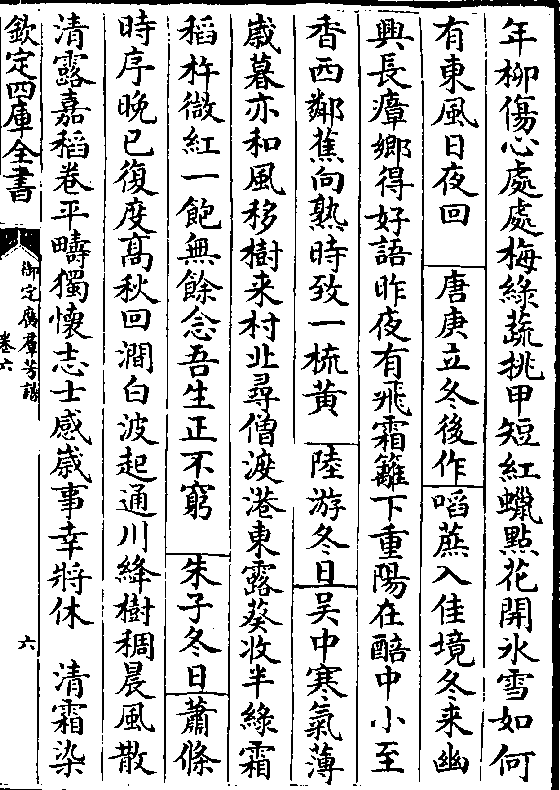 年柳傷心處處梅綠蔬挑甲短紅蠟點花開氷雪如何
有東風日夜回　唐庚立冬後作　啗蔗入佳境冬来幽
興長瘴鄉得好語昨夜有飛霜籬下重陽在醅中小至
香西鄰蕉向熟時致一梳黄　陸游冬日　吴中寒氣薄
歳暮亦和風移樹来村北尋僧渡港東露葵收半綠霜
稻杵微紅一飽無餘念吾生正不窮　朱子冬日　蕭條
時序晚已復度髙秋回澗白波起通川絳樹稠晨風散
清露嘉稻卷平疇獨懷志士感歳事幸將休　清霜染
欽定四庫全書
御定廣羣芳譜
卷六
六